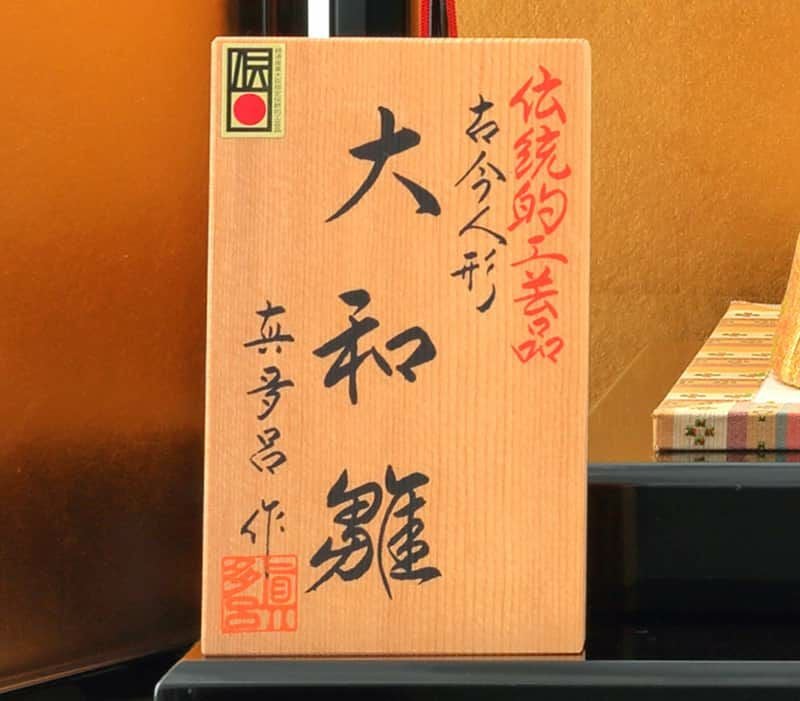 伝統的工芸品
古今人形
大和雛
真多呂作
真多呂
伝